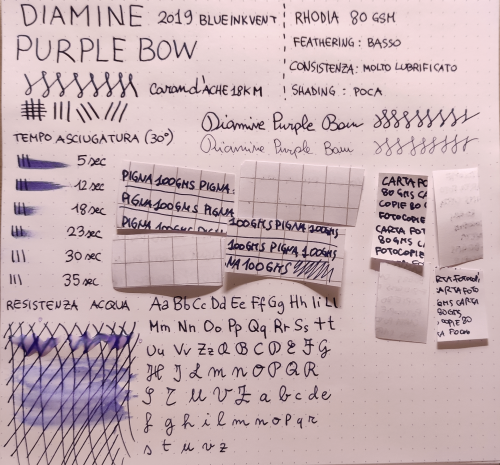 DIAMINE 2019 BLUE INKVENT
PURPLE BOW
Caran d'ACHE 18KM
RHODIA 80 GSM
FEATHERING: BASSO
CONSISTENZA: MOLTO LUBRIFICATO
SHADING: POCA
Diamine Purple Bow
Diamine Purple Bow
TEMPO ASCIUGATURA (30°)
5 sec
12 sec
18 sec
23 sec
30 sec
35 sec
PIGNA 100GMS PIGNA
PIGNA 100GMS PIGNA
PIGNA 100GMS PIGNA
100GMS PIGNA 100GMS
100GMS PIGNA 100GMS
NA 100GMS
CARTA FO
80 GMS CA
COPIE 80 G
FOTOCOPIE
CARTA FOT
80 GMS CA
FOTOCOPIE
CARTA FOTO
GMS CARTA
80GMS
COPIE 80
RESISTENZA ACQUA
Aa Bb Cc Dd Ee Ff Gg Hh Ii Ll
Mm Nn Oo Pp Qq Rr Ss tt
Uu Vv Zz A B C D E F G
H I L M N O P Q R
S T U V Z a b c d e
f g h i l m n o p q r
s t u v z